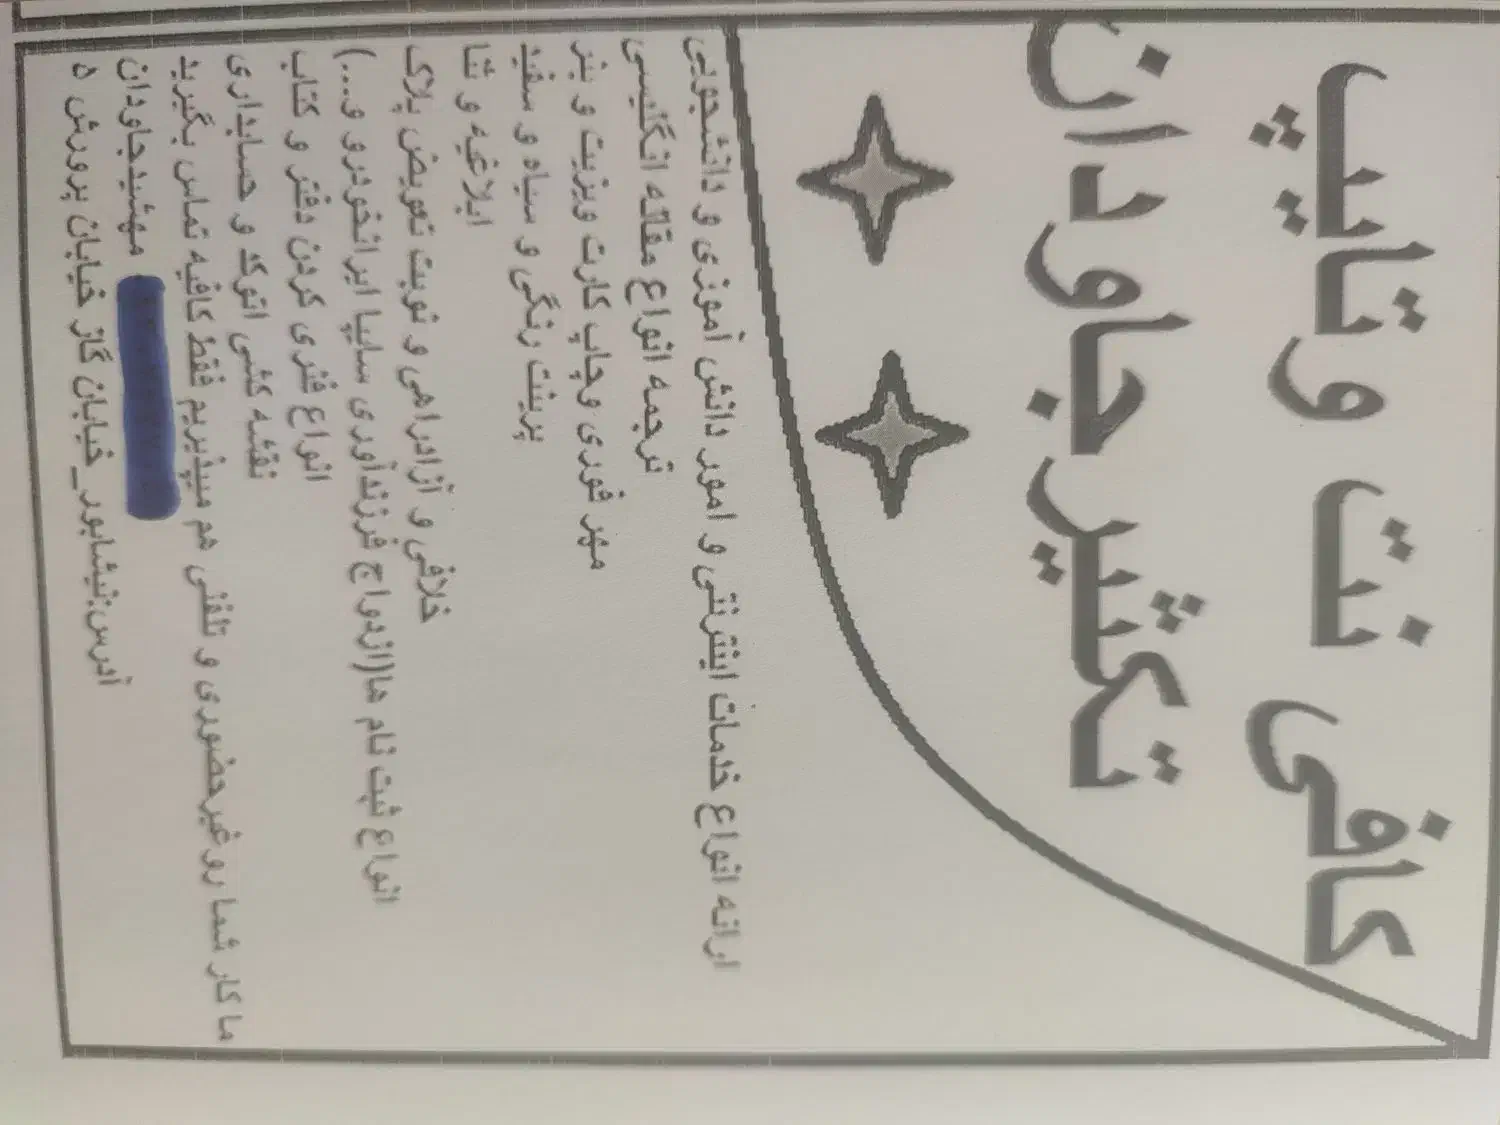 کافی نت وتایپ
تکثیرجاودان
ارائه انواع خدمات اینترنتی و امور دانش آموزی و دانشجویی
ترجمه انواع مقاله انگلیسی
مهر فوری وچاپ کارت ویزیت و بنر
پرینت رنگی و سیاه و سفید
ابلاغیه و ثنا
خلافی و آزادراهی و نوبت تعویض پلاک
انواع ثبت نام ها(ازدواج فرزندآوری سایپا ایرانخودرو و....)
انواع فنری کردن دفتر و کتاب
نقشه کشی اتوکد و حسابداری
ما کار شما رو غیرحضوری و تلفنی هم میپذیریم فقط کافیه تماس بگیرید
مهشیدجاودان
آدرس:نیشابور_خیابان گاز خیابان پرورش ۵